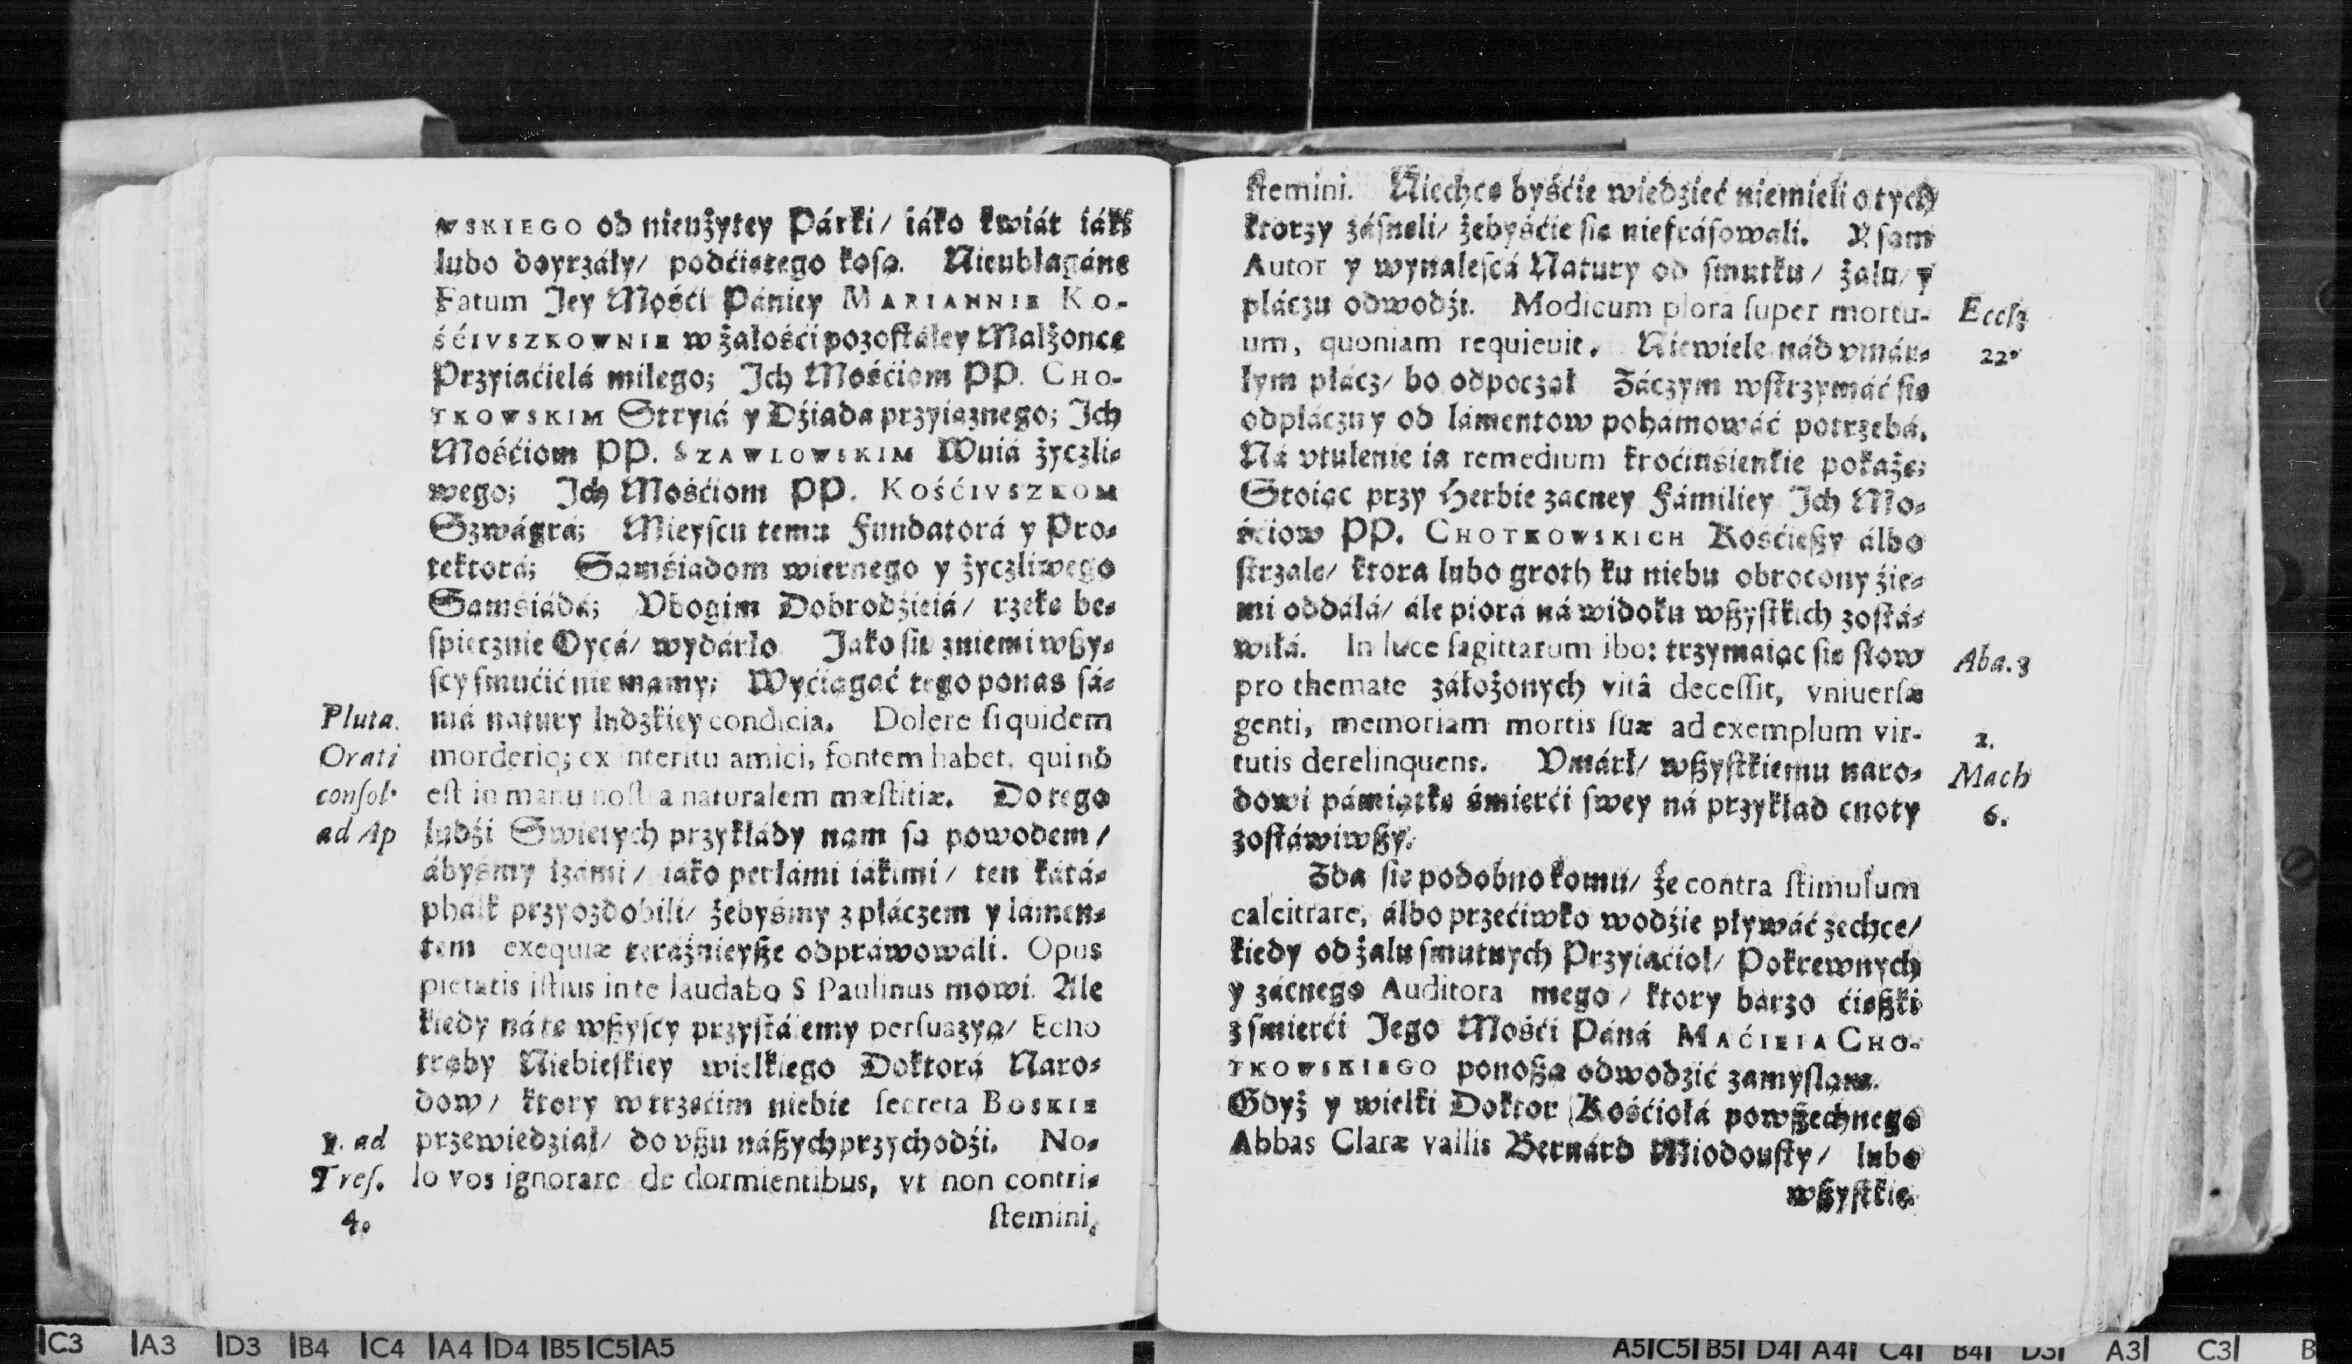 WSKIEGO od nieużytey Párki/ iáko kwiát iáki
lubo doyrzáły/ podćiętego kosą. Nieubłagáne
Fatum Jey Mośći Pániey MARIANNIE KO-
ŚĆIVSZKOWNIE w żałośći pozostáłey Małżonce
Przyiaćielá miłego; Jch Mośćiom PP. CHO-
TKOWSKIM Stryiá y Dźiada przyiaznego; Jch
Mośćiom PP. SZAWLOWSKIM Wuiá życzli-
wego; Jch Mośćiom PP. KOŚĆIVSZKOM
Szwágrá; Mieyscu temu Fundatorá y Pro-
tektorá; Sąmśiadom wiernego y życzliwego
Sąmśiádá; Vbogim Dobrodźieiá/ rzekę be-
śpiecznie Oycá/ wydárło. Jako się z niemi wßy-
scy smućić nie mamy; Wyćiągáć tego po nas sá-
má natury ludzkiey condicia. Dolere siquidem
Pluta.
Orati
consol.
ad Ap
morderiq; ex interitu amici, fontem habet, qui nõ
est in manu nostra naturalem mæstitiæ. Do tego
ludźi Swiętych przykłády nam są powodem/
ábyśmy łzámi/ iáko perłámi iákimi/ ten kátá-
phalk przyozdobili/ żebyśmy z płáczem y lámen-
tem exequiæ teráźnieyße odpráwowáli. Opus
pietatis istius in te laudabo S Paulinus mowi. Ale
kiedy ná tę wßyscy przystáiemy persuazyą/ Echo
trąby Niebieskiey wielkiego Doktorá Naro-
dow/ ktory w trzećim niebie secreta BOSKIE
przewiedział/ do vßu náßych przychodźi. No-
lo vos ignorare de dormientibus, vt non contri-
1. ad
Tres.
4.
stemini.
stemini. Niechcę byśćie wiedzieć niemieli o tych
ktorzy zásnęli/ żebyśćie się niefrásowali. Y sam
Autor y wynalescá Natury od smutku/ żalu/ y
płáczu odwodźi. Modicum plora super mortu-
um, quoniam requieuit. Niewiele nád vmár-
Eccls
22.
łym płácz/ bo odpoczął Záczym wstrzymáć się
od płáczu y od lámentow pohámowáć potrzebá.
Ná vtulenie ia remedium kroćiuśienkie pokażę;
Stoiąc przy Herbie zacney Fámiliey Jch Mo-
śćiow PP. CHOTKOWSKICH Kośćießy álbo
strzale/ ktora lubo groth ku niebu obrocony źie-
mi oddálá/ ále piorá ná widoku wßystkich zostá-
wiłá. In luce sagittarum ibo: trzymaiąc się słow
Aba. 3
pro themate záłożonych vitâ decessit, vniuersæ
genti, memoriam mortis suæ ad exemplum vir-
tutis derelinquens. Vmárł/ wßystkiemu naro-
dowi pámiątkę śmierći swey ná przykład cnoty
zostáwiwßy.
2.
Mach
6.
Zda się podobno komu/ że contra stimulum
calcitrare, álbo przećiwko wodźie pływáć zechce/
kiedy od żalu smutnych Przyiaćioł/ Pokrewnych
y zácnego Auditora mego/ ktory barzo ćiężki
z śmierći Jego Mośći Páná MAĆIEIA CHO-
TKOWSKIEGO ponoßą odwodzić zamyślam.
Gdyż y wielki Doktor Kośćiołá powßechnego
Abbas Claræ vallis Bernárd Miodousty/ lubo
wßystkie
C3 A3 D3 B4 C4 A4 D4 B5 C5 A5
A5 C5 B5 D4 A4 C4 B4 D3 A3 C3 B